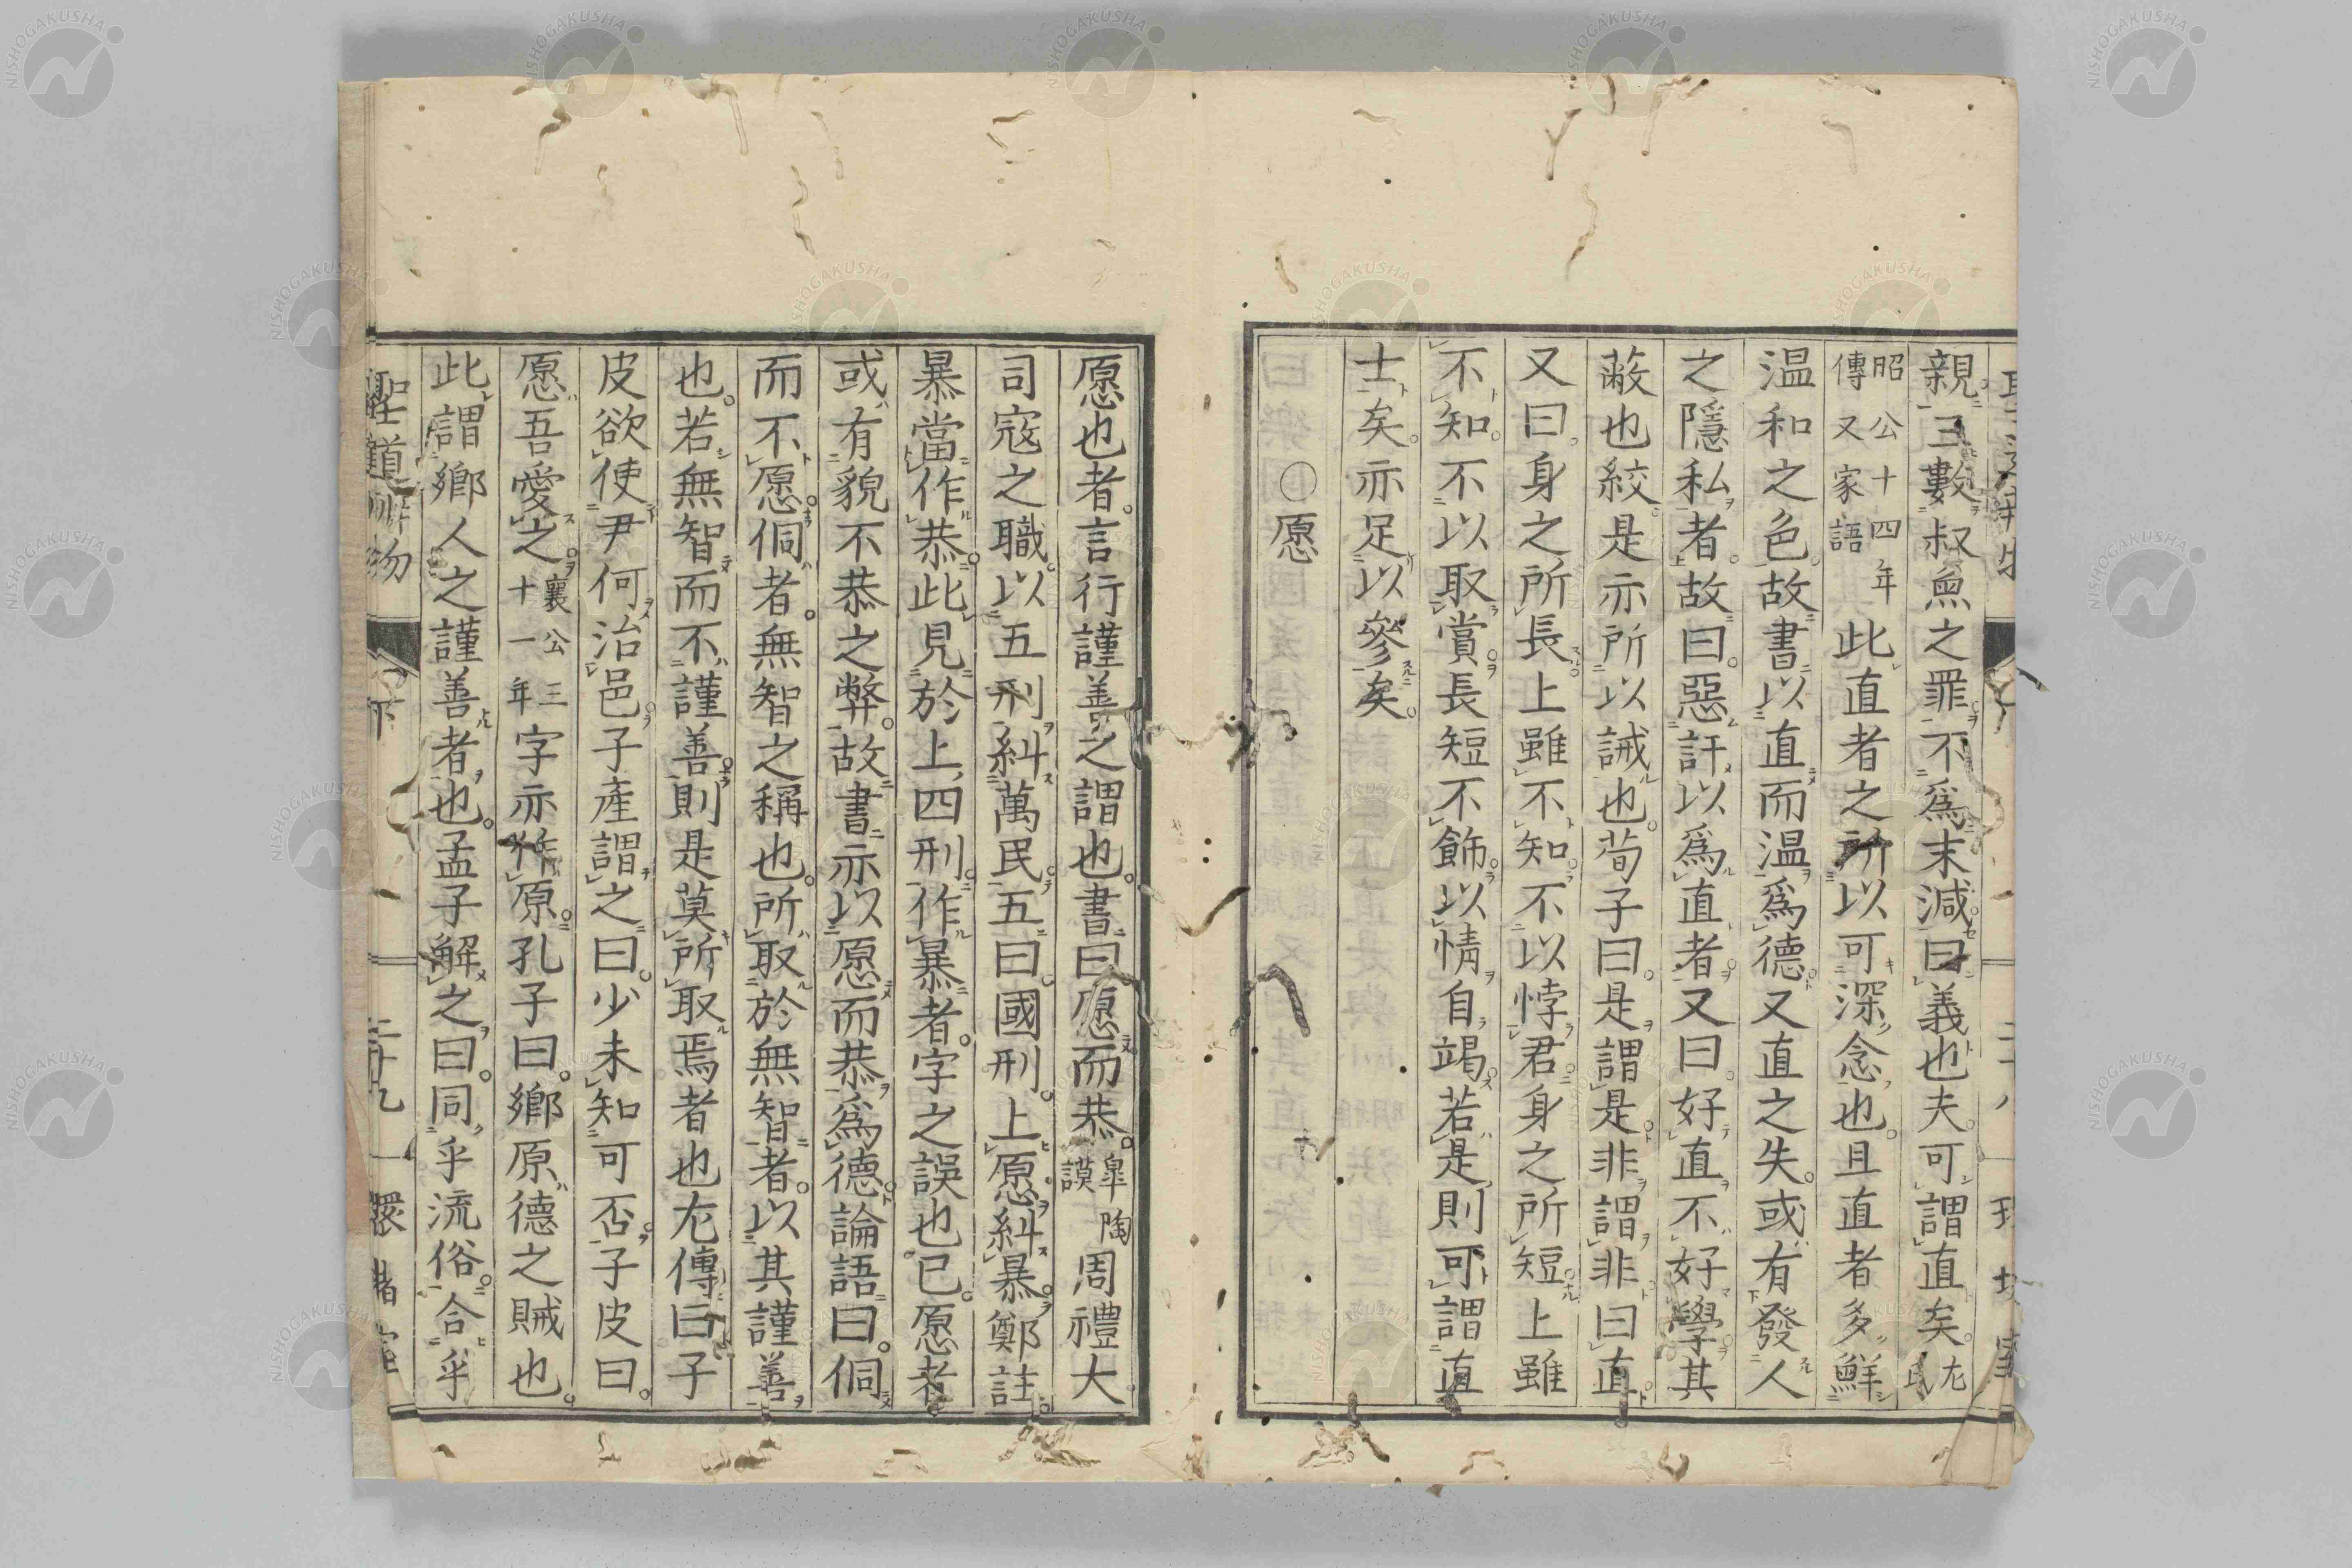 親三數叔魚之罪不爲末減曰義也夫可謂直矣左氏
昭公十四年
傳又家語
此直者之所以可深念也且直者多鮮
温和之色故書以直而温爲德又直之失或有發人
之隱私者故曰惡訐以爲直者又曰好直不好學其
蔽也絞是亦所以誡也荀子曰是謂是非謂非曰直
又曰身之所長上雖不知不以悖君身之所短上雖
不知不以取賞長短不飾以情自竭若是則可謂直
士矣亦足以參矣
○愿
愿也者言行謹善之謂也書曰愿而恭
皐陶
謨
周禮大
司寇之職以五刑糾萬民五曰國刑上愿糾暴鄭註
暴當作恭此見於上四刑作暴者字之誤也已愿者
或有貌不恭之弊故書亦以愿而恭爲德論語曰侗
而不愿侗者無智之稱也所取於無智者以其謹善
也若無智而不謹善則是莫所取焉者也左傳曰子
皮欲使尹何治邑子產謂之曰少未知可否子皮曰
愿吾愛之
襄公三
十一年
字亦作原孔子曰鄉原德之賊也
此謂鄉人之謹善者也孟子解之曰同乎流俗合乎
聖道辨物
下
二十九
NISHOGAKUSHA